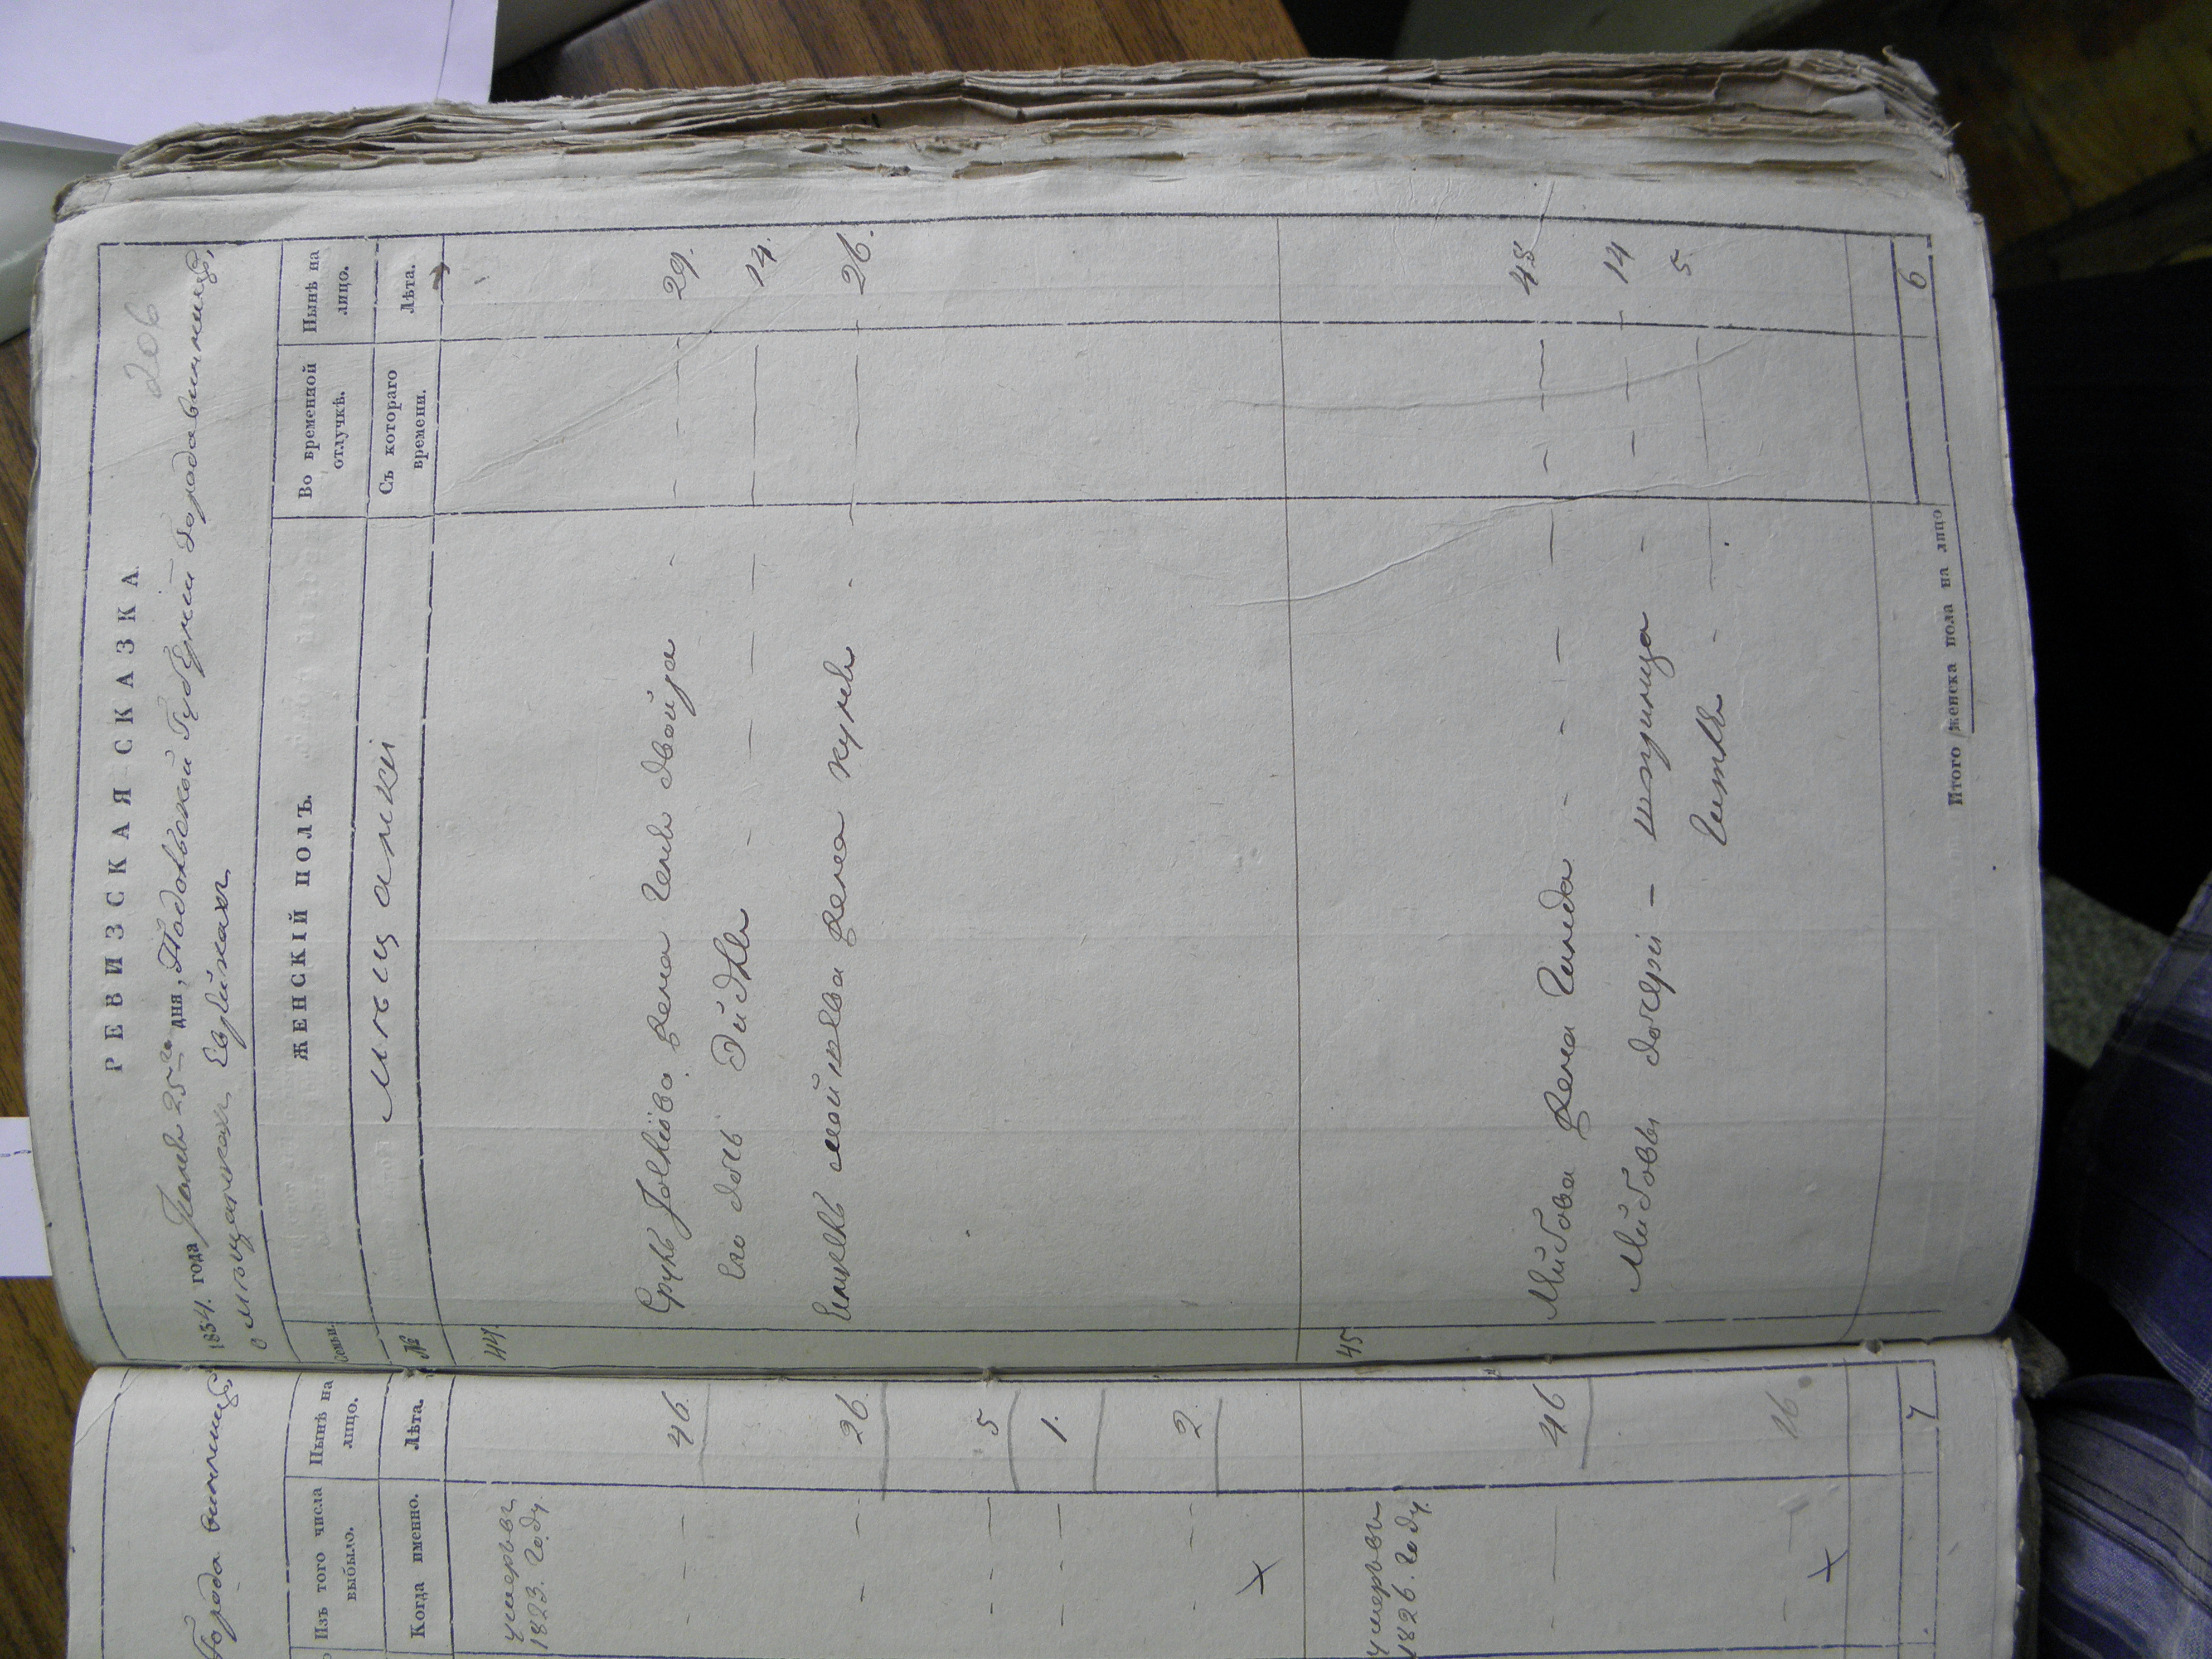 206
РЕВИЗСКАЯ СКАЗКА
1834. года 25го дня, Подольской Губерніи города винницы,
о мѣщанахъ Евреяхъ
Семьи.
ЖЕНСКІЙ ПОЛЪ.
Во временной отлучкѣ.
Нынѣ на лицо.
№
мѣщанки
Съ котораго времени.
Лѣта.
44.
жена двойра - 29.
Его дочь Эйдля - 14.
жена - 26.
45
Лейбова жена Гинда - 45
Лейбовы дочери - шпринца - 14
5.
Итого женска пола на лицо
6
города винницы
Изъ того числа выбыло.
Нынѣ на лицо.
Когда именно.
Лѣта.
умеръ въ
1823. году.
46.
26.
5
1.
2.
умеръ въ
1826. году.
46
16.
7